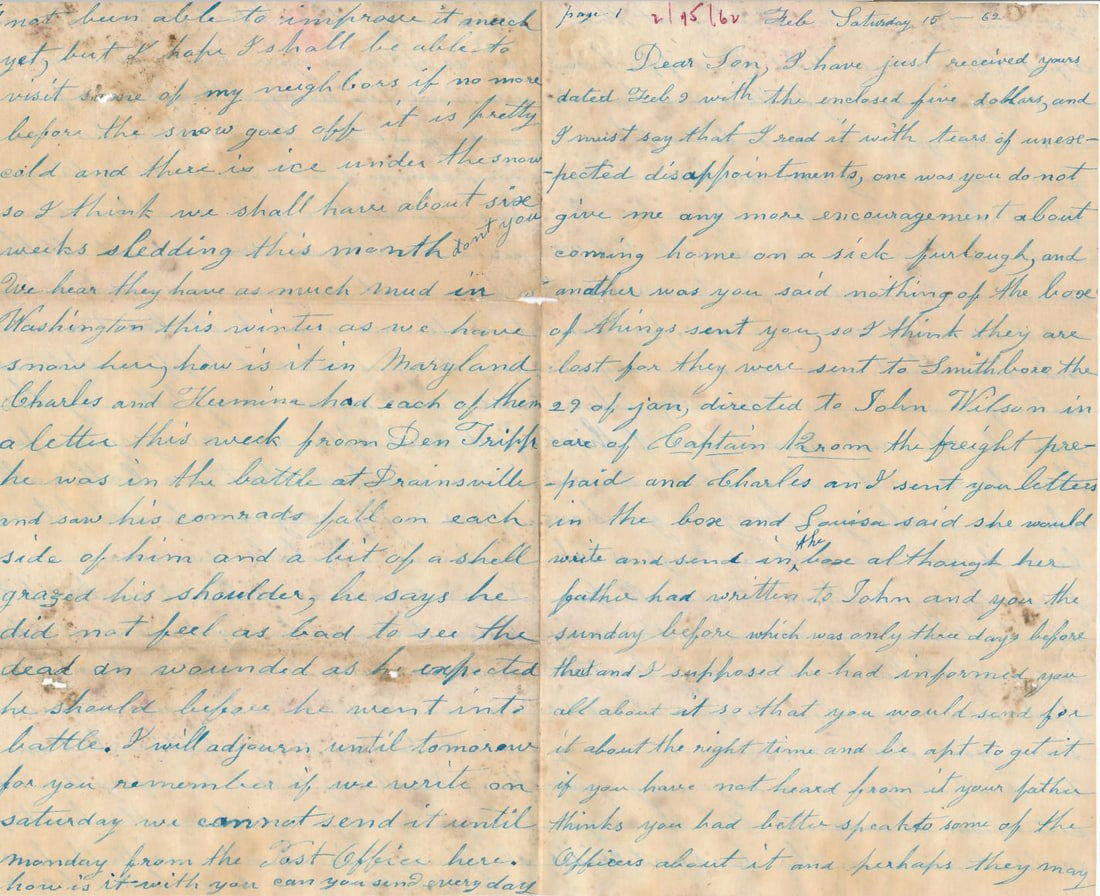 page 1 2/15/62 Feb Saturday 15 - 62
Dear Son, I have just received yours
dated Feb 9 with the enclosed five dollars, and
I must say that I read it with tears of unex-
-pected disappointments, one was you do not
give me any more encouragement about
coming home on a sick furlough, and
another was you said nothing of the box
of things sent you, so I think they are
lost for they were sent to Smithboro the
29 of jan, directed to John Wilson in
care of Captain the freight pre-
-paid and Charles an I sent you letters
in the box and Louisa said she would
write and send in the box although her
father had written to John and you the
sunday before which was only three days before
that and I supposed he had informed you
all about it so that you would send for
it about the right time and be apt to get it
if you have not heard from it your father
thinks you had better speak to some of the
Officers about it and perhaps they may
not been able to improve it much
yet, but I hope I shall be able to
visit some of my neighbors if no more
before the snow goes off it is pretty
cold and there is ice under the snow
so I think we shall have about six
weeks sledding this month dont you
We hear they have as much mud in
Washington this winter as we have
snow here, how is it in Maryland
Charles and Hermina had each of them
a letter this week from Den Tripp
he was in the battle at Drainsville
and saw his comrads fall on each
side of him and a bit of a shell
grazed his shoulder, he says he
did not feel as bad to see the
dead an wounded as he expected
he should before he went into
battle. I will adjourn until tomorow
for you remember if we write on
saturday we cannot send it until
monday from the Post Office here.
how is it with you can you send every day